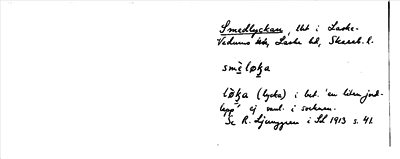 Smedlyckan, lht i Laske-
Vedums sn, Laske hd, Skarab. l.
smèløka
lø̀ka (lycka) i bet. 'en liten jord-
lapp' ej vanl. i socknen.
Se R. Ljunggren i SL 1913 s. 41.